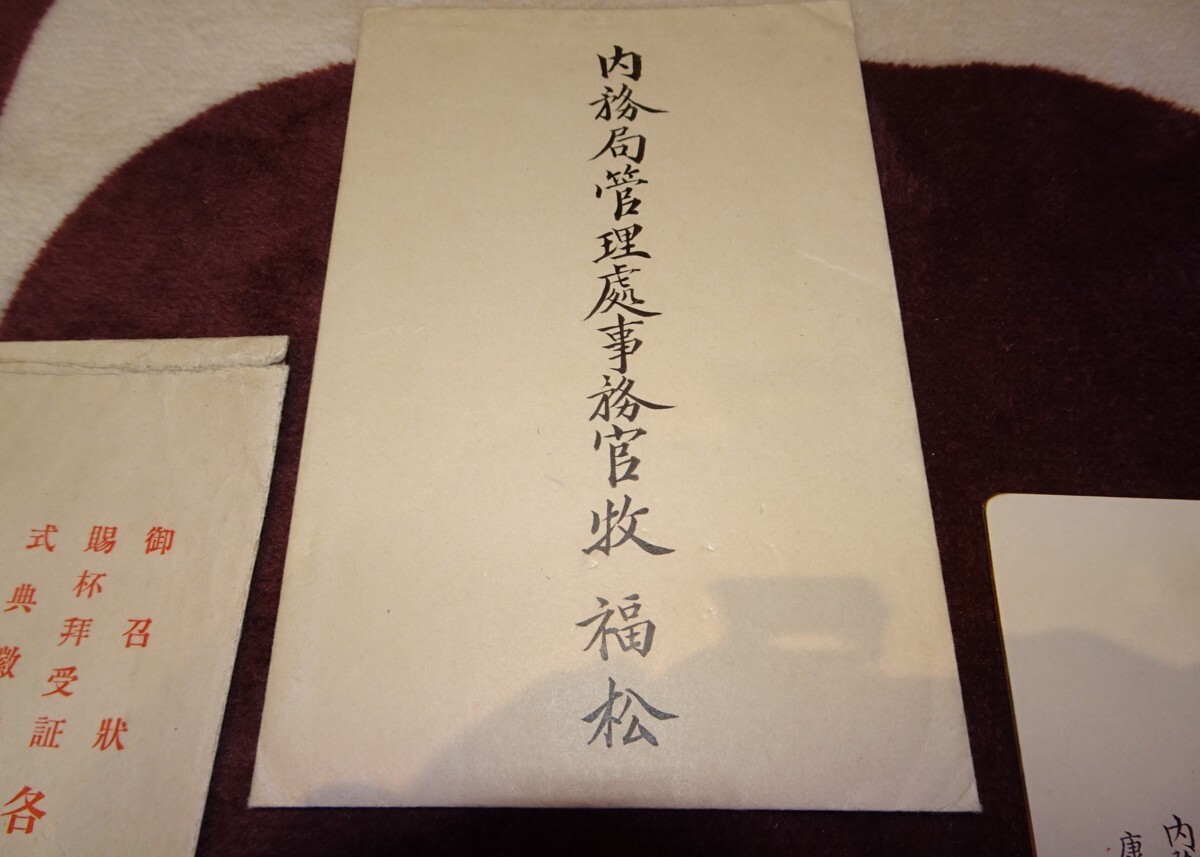 内務局管理處事務官牧 福松
御召狀
賜杯拜受証
式典徽
各
内
康